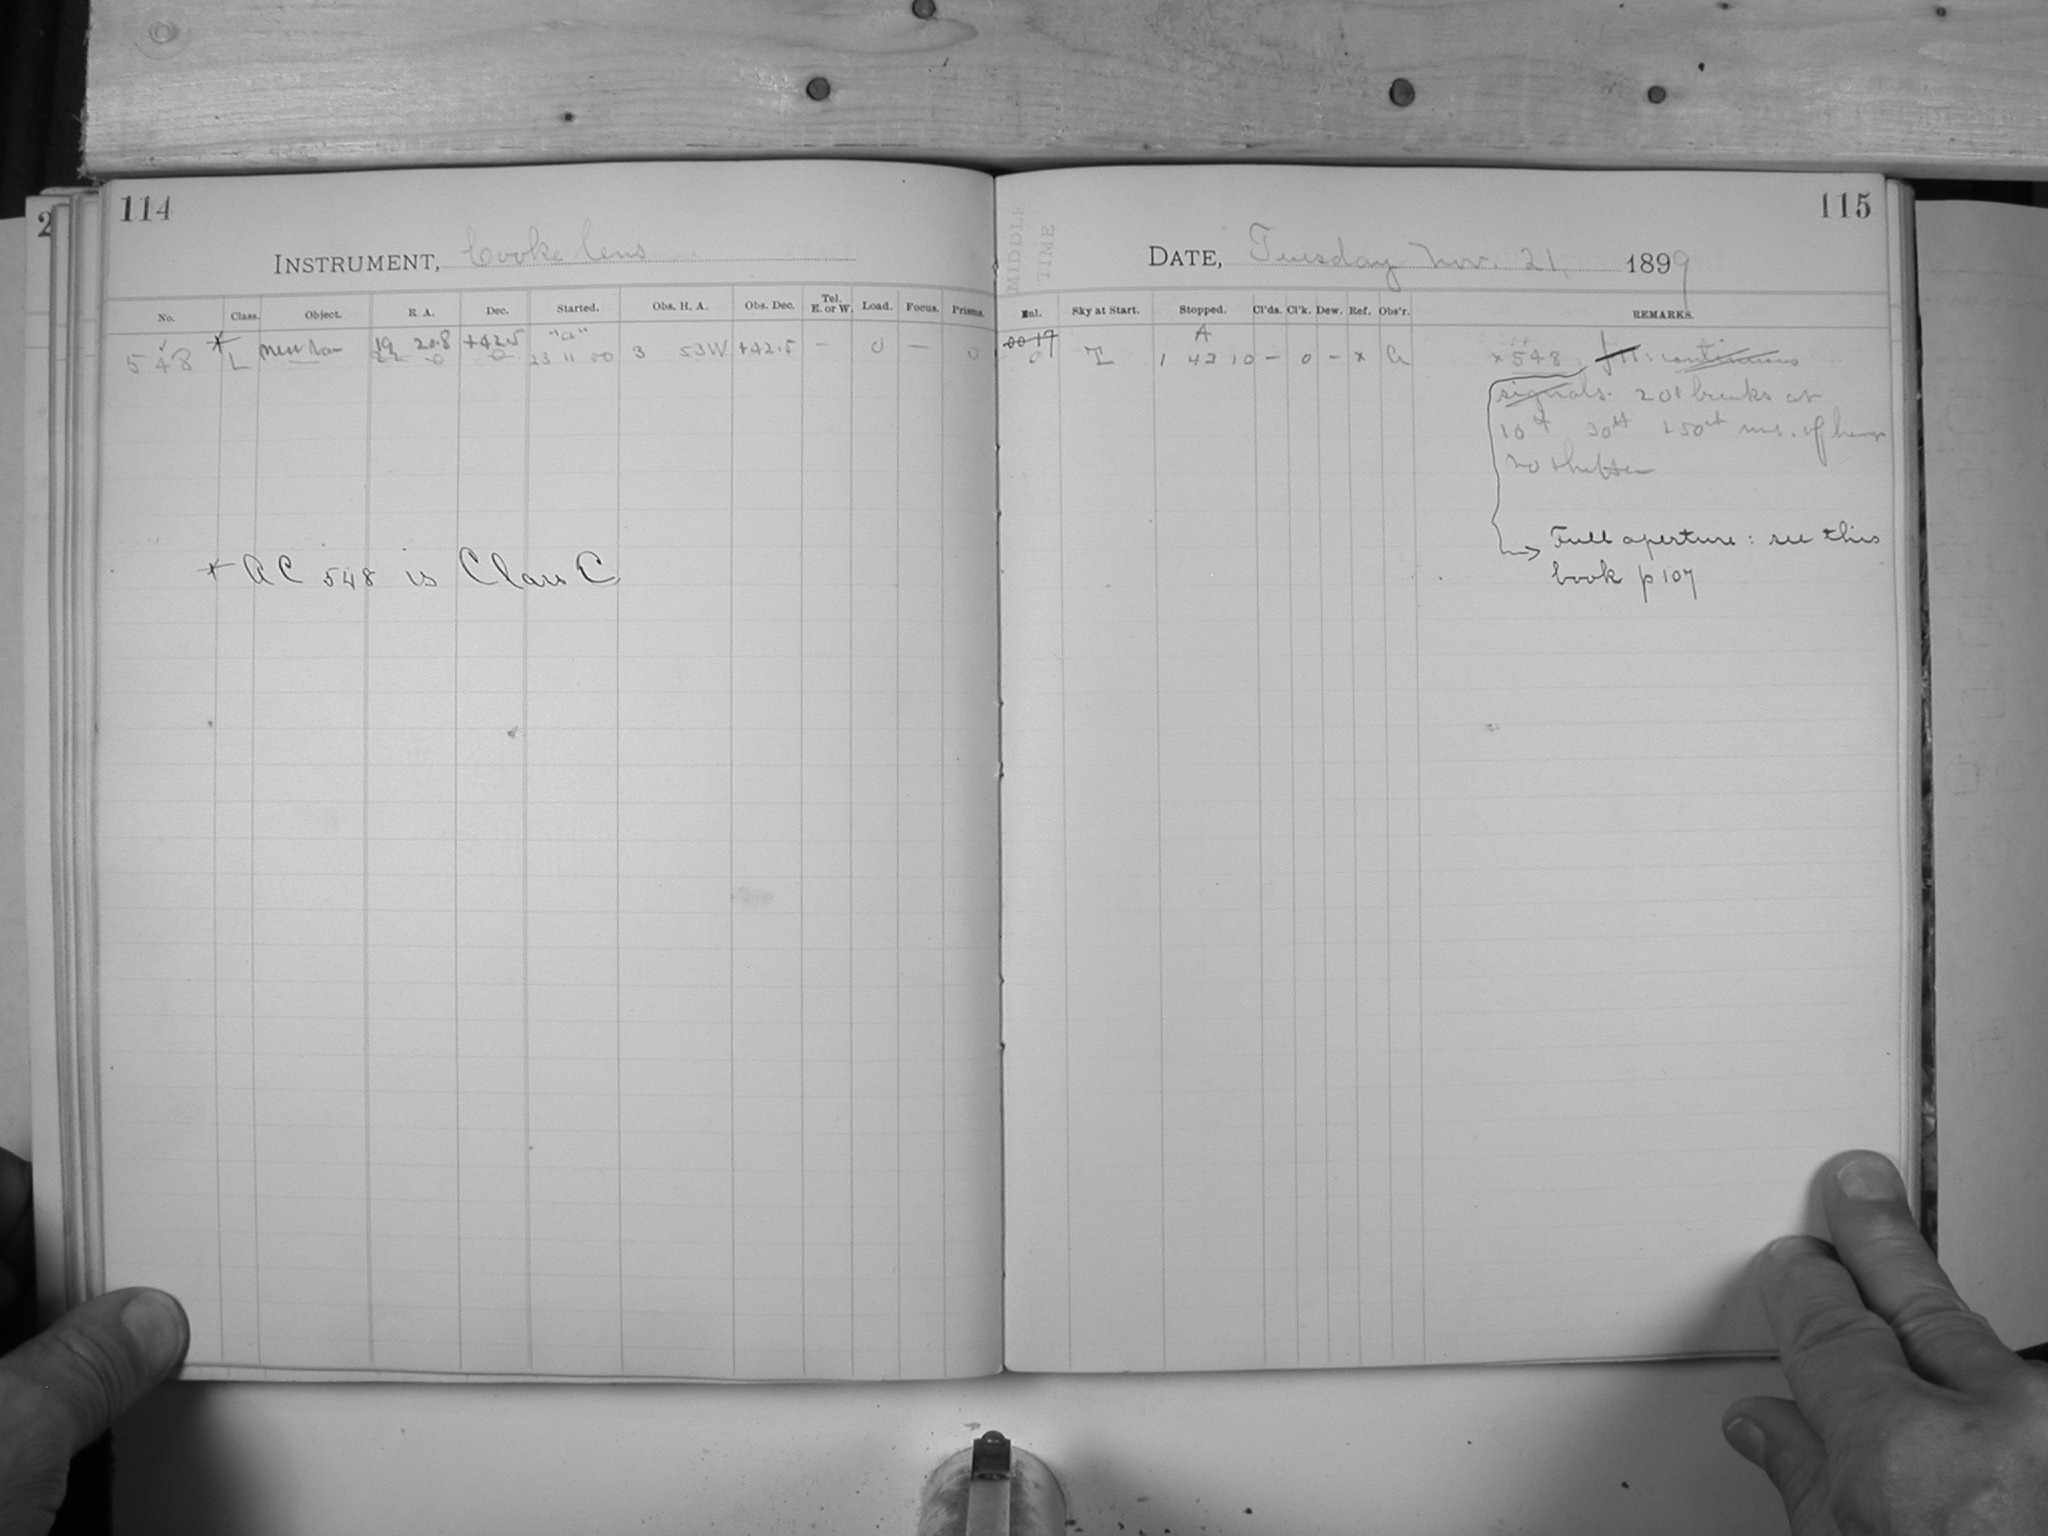 114
INSTRUMENT, Cooke lens
No. Class. Object. R. A. Dec. Started. Obs. H. A. Obs. Dec. Tel. E. or W. Load. Focus. Prisms.
19 20.8 +42.5 "a"
548 * L 23 11 00 3 53W +42.5 — 0 — 0
* AC 548 is Class C
115
MIDDLE TIME
DATE, Tuesday Nov. 21, 1899
Enl. Sky at Start. Stopped. Cl'ds. Cl'k. Dew. Ref. Obs'r. REMARKS.
0017 A
0 1 43 10 — 0 — x x 548 continuous
signals. breaks at
10th 30th
Full aperture: see this
book p 107